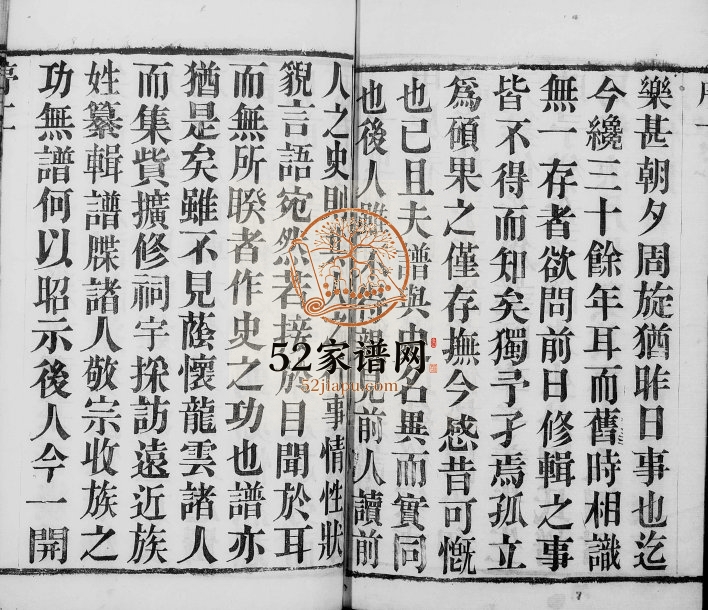 樂甚朝夕周旋猶昨日事也迄
今纔三十餘年耳而舊時相識
無一存者欲問前日修輯之事
皆不得而知矣獨予孑焉孤立
爲碩果之僅存撫今感昔可慨
也已且夫譜與史名異而實同
也後人雖不得親見前人讀前
人之史則其人之事情性狀
貌言語宛然若接於目聞於耳
而無所睽者作史之功也譜亦
猶是矣雖不見蔭懷龍雲諸人
而集貲擴修祠宇採訪遠近族
姓纂輯譜牒諸人敬宗收族之
功無譜何以昭示後人今一開
52家谱网
52jiapu.com